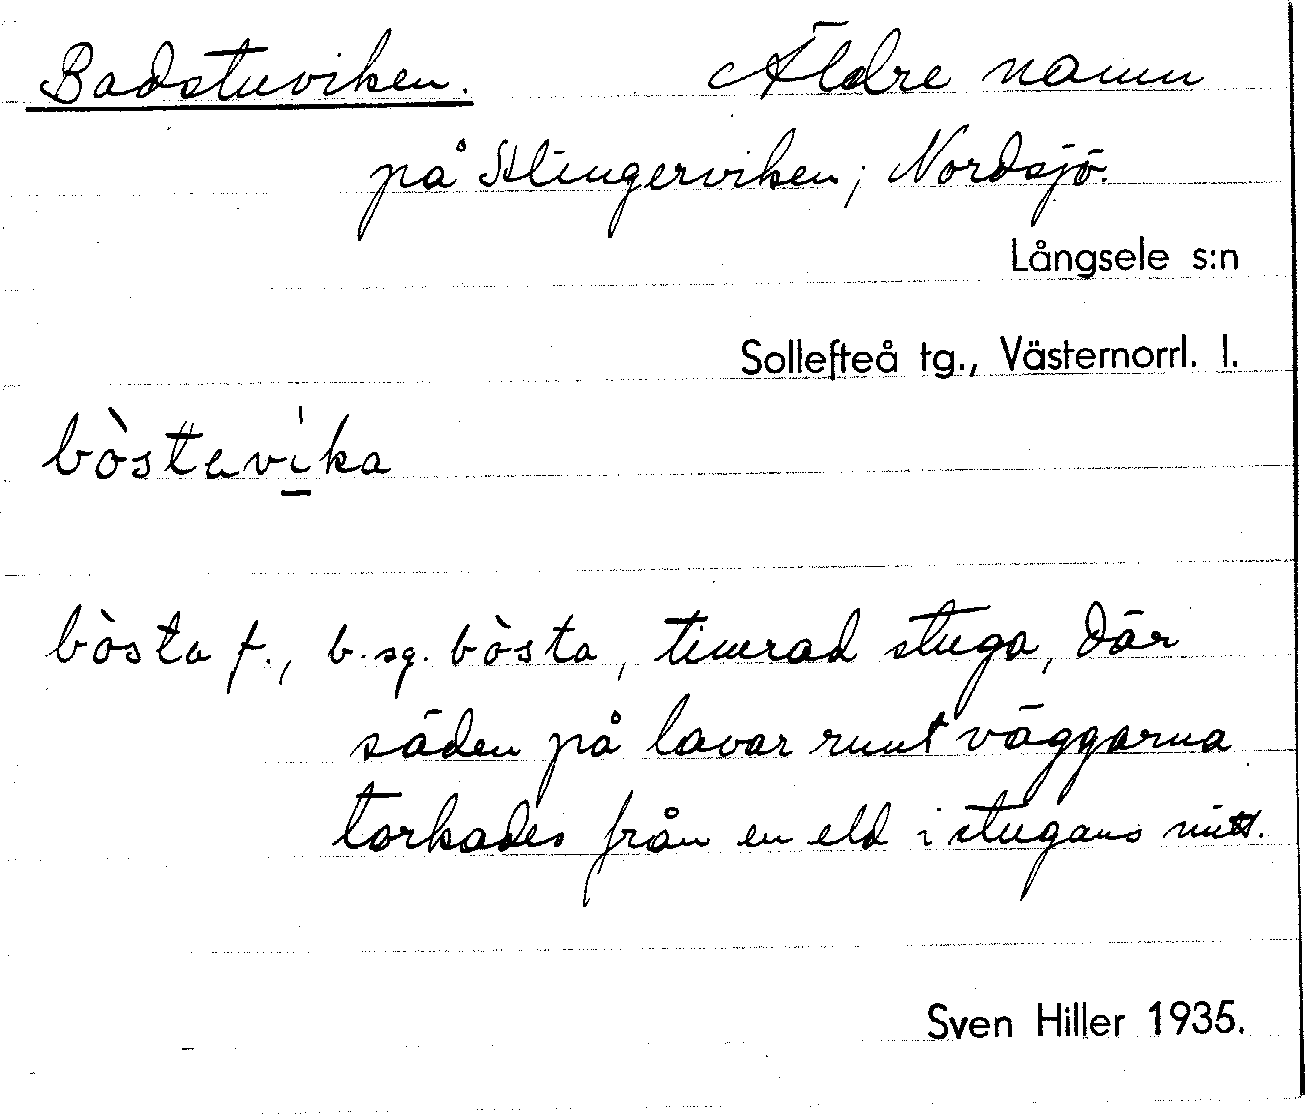 Badstuviken. Äldre namn
på Slingerviken; Nordsjö.
Långsele s:n
Sollefteå tg., Västernorrl. l.
bòstavi̠ka
bòsta f., b. sg. bòsta, timrad stuga, där
säden på lavar runt väggarna
torkades från en eld i stugans mitt.
Sven Hiller 1935.